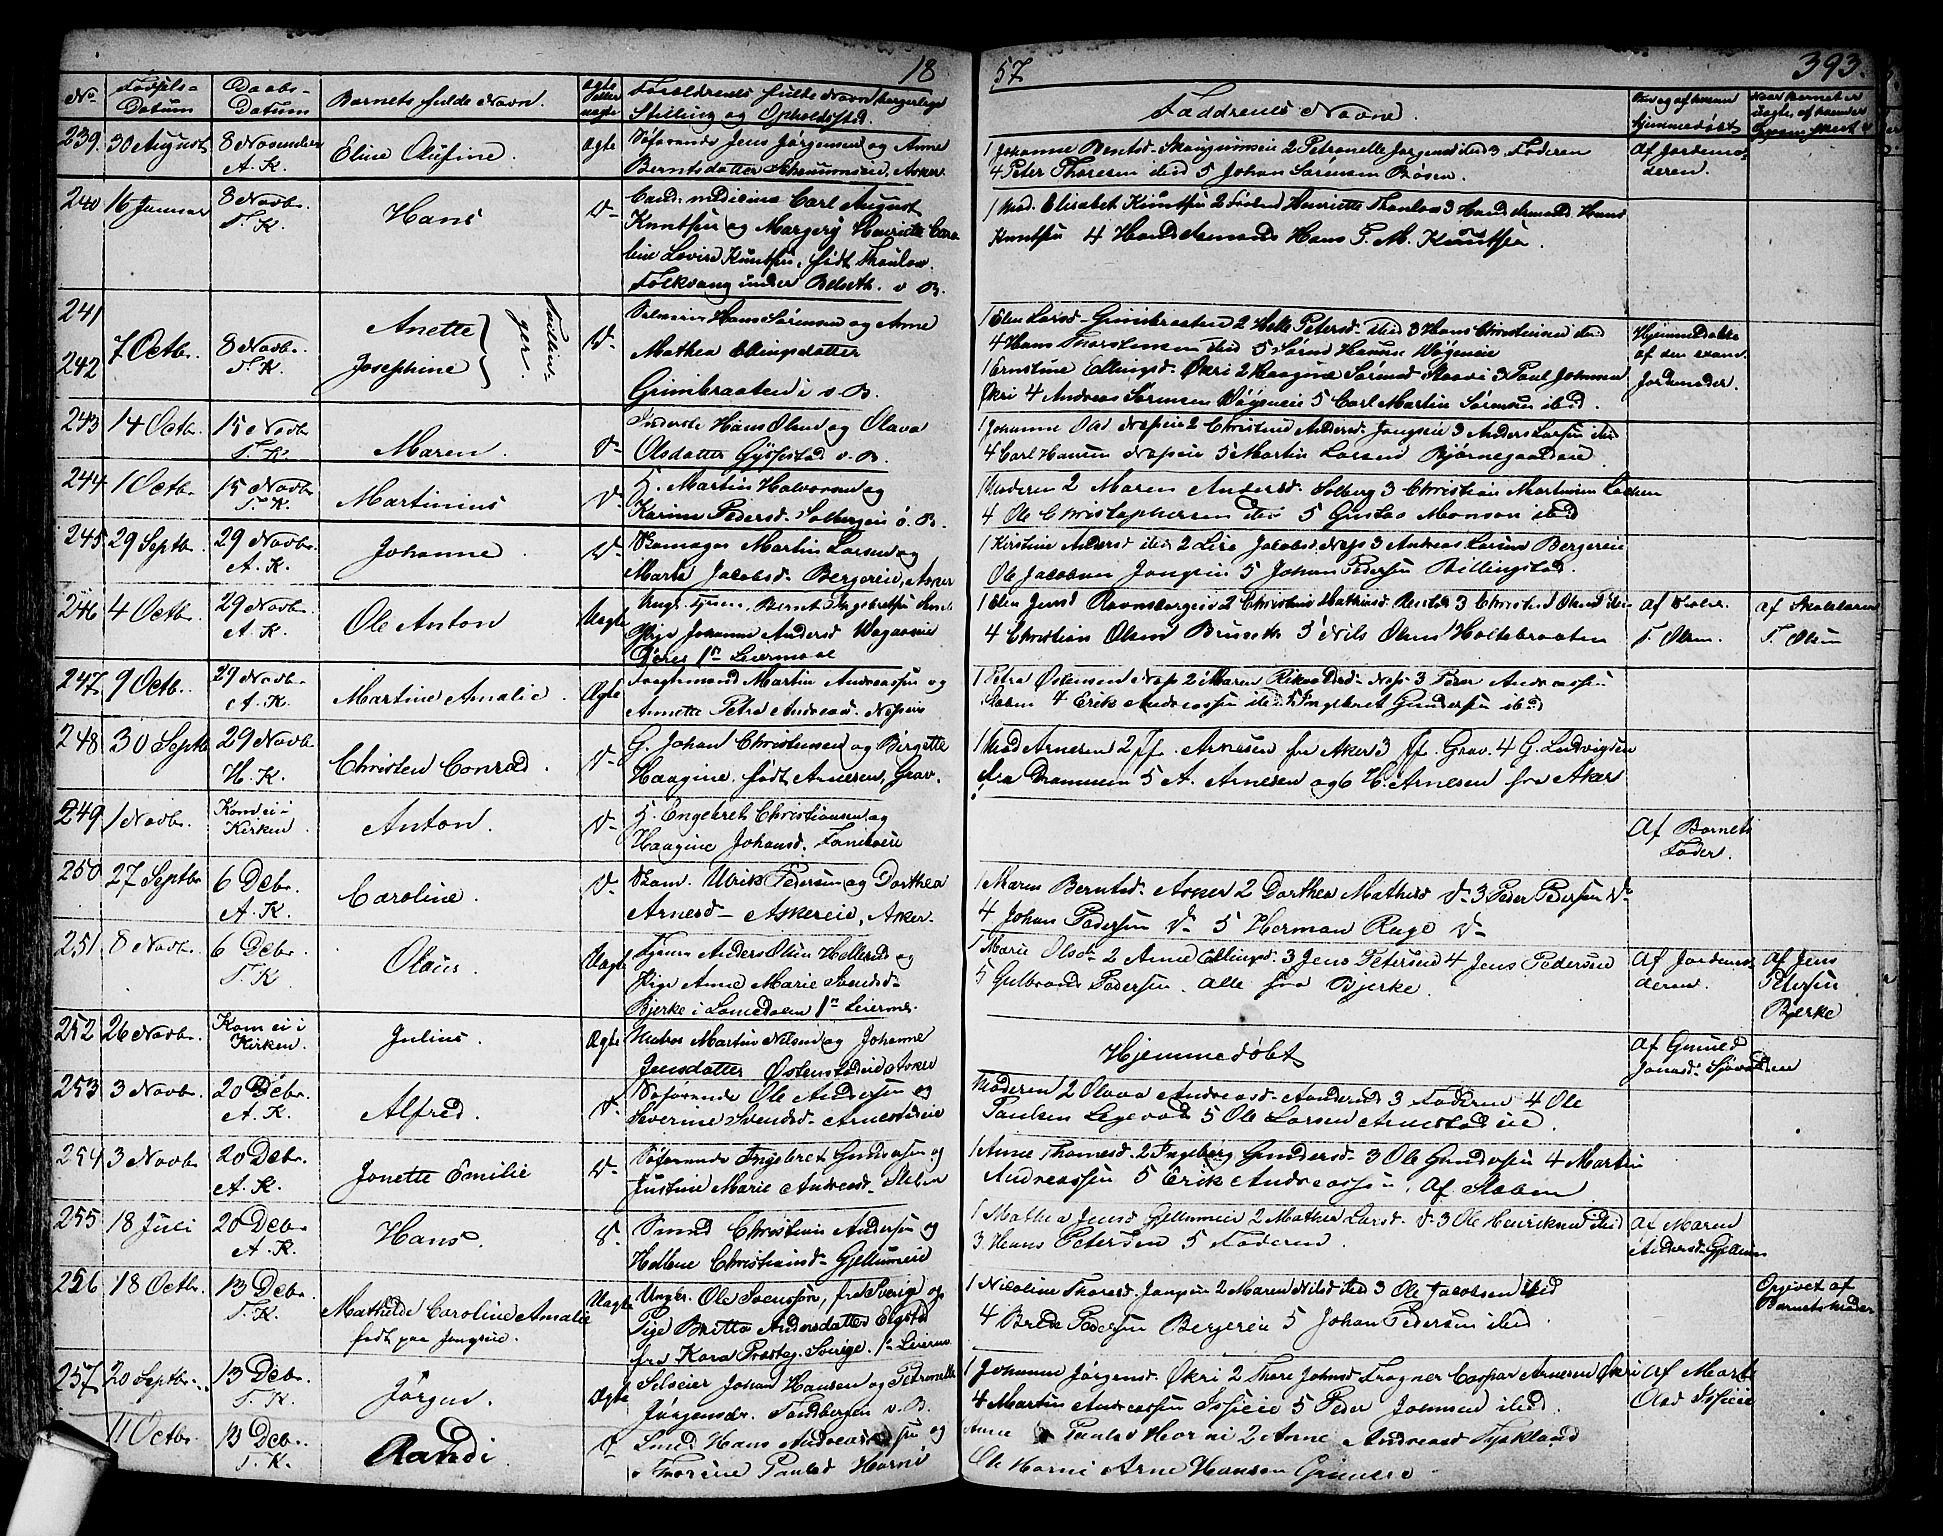 18
57
393.
No
Fødsels-
Datum
Daabs-
Datum
Barnets fulde Navn.
Ægte
eller
uægte
Forældrenes fulde Navn borgerlige
Stilling og Opholdssted.
Faddrenes Navne.
hjemmedøbt
239. 30 August 8 November
A. K.
Eline Olufine.
Ægte
Søfarende Jens Jørgensen og Anne
Berntsdatter Asker
1 Johanne Berntsd. 2 Petronelle Jørgensd ibid 3 Faderen
4 Peter Thoresen ibid 5 Johan Sørensen
Af Jordemo-
deren.
240 16 Januar 8 Novbr.
T. K.
Hans
D-
Cand. medicina Carl August
Knutsen og Margery Henriette Caro
line Lovise Knutsen, født Thaulow
Folkvang under Belseth. v B.
1 Mad. Elisabet Knutsen 2 Frøken Henriette Thaulow 3 Handelsmand Hans
Knutsen 4 Handelsmand Hans T. M. Knutsen.
241
242
7 Octbr. 8 Novbr.
T. K.
Anette
Josephine
Tvillin-
ger.
D-
Hans Sørensen og Anne
Mathea Ellingsdatter
Grinibraaten i v B.
1 Elen Larsd. Grinibraaten 2 Helle Petersd. ibid 3 Hans Christensen ibid
4 Hans Thorstensen ibid 5 Hansen Vøgeneie
1 Ernstine Ellingsd. Økri 2 3 Paul Johnsen
Økri 4 Andreas Sørensen Vøgeneie 5 Carl Martin Sørensen ibid.
Hjemmedøbte
af den exam.
Jordemoder.
243 14 Octbr. 15 Novbr
T. K.
Maren.
D-
Hans Olsen og Olava
Olsdatter Gypestad v. B.
1 Johanne Olsd Næseie 2 Christine Andersd. Jongseie 3 Anders Larsen ibid
4 Carl Hansen Næseie 5 Martin Larsen Bjørnegaardeie
244 1 Octbr. 15 Novbr
T. K.
Martinius
D-
H. Martin Halvorsen og
Karine Pedersd. Solbergeie v. B.
1 Moderen 2 Maren Andersd. Solberg 3 Christian Martinsen
4 Ole Christophersen ibid 5 Gustav Monson ibid
245 29 Septbr. 29 Novbr.
A. K.
Johanne
D-
Skomager Martin Larsen og
Marte Jacobsd. Bergereie, Asker
1 Kirstine Andersd ibid 2 Lise Jacobsd. Næs 3 Andreas Larsen Bergereie
Ole Jacobsen Jongseie 5 Johan Pedersen Billingstad.
246 4 Octbr. 29 Novbr.
A. K.
Ole Anton
Uægte
Ungk. Tjener. Bernt Ingebretsen
Pige Johanne Andersd
1n Leiermaal
1 Elen Jensd Ravnsborgeie 2 Christine Mathiasd. 3 Christen Olsen
4 Christian Olsen 5 Nils Olsen Holtebraaten
Af
T Olsen.
af Skolelærer
T. Olsen
247 9 Octbr. 29 Novbr.
A. K.
Martine Amalie
Ægte
Martin Andreassen og
Annette Petra Andreasd. Næseie
1 Petra Næs 2 Maren Næs 3 Peter Andreassen
Staben 4 Erik Andreassen ibid 5 Ingebret Gundersen ibid
248 30 Septbr 29 Novbr.
H. K.
Christen Conrad.
D-
G. Johan Christensen og Birgette
Haagine født Arnesen, Grav.
1 Mad Arnesen 2 Jf. Arnesen fra Aker 3 Jf. Grav. 4 G. Ludvigsen
fra Drammen 5 A. Arnesen og 6 H. Arnesen fra Aker
249 1 Novbr. Kom ei i
Kirken
Anton.
D-
H. Engebret Christiansen og
Haagine Johansd.
Af Barnets
Fader.
250 27 Septbr 6 Debr.
A. K.
Caroline.
D-
Skom. Ulrik Pedersen og Dorthea
Arnesd- Askereie, Asker.
1 Maren Berntsd. Asker 2 Dorthea Mathisd D- 3 Peder Pedersen D-
4 Johan Pedersen D- 5 Herman Ruge D-
251. 8 Novbr. 6 Debr.
T. K
Olaus.
Uægte
Tjener Anders Olsen Hellerud og
Pige Anne Marie Svendsd-
Bjerke i Lomedalen 1n Leierm.
1 Marie Olsd. 2 Anne Ellingsd. 3 Jens Petersen 4 Jens Pedersen
5 Gulbrand Pedersen. Alle fra Bjerke.
Af Jordemo-
deren.
Af Jens
Petersen
Bjerke
252 26 Novbr. Kom ei i
Kirken.
Julius.
Ægte
Matros Martin Nilsen og Johanne
Jensdatter Østenstadeie Asker
Hjemmedøbt
Af Gunild
253 3 Novbr. 20 Debr.
A. K.
Alfred.
D-
Søfarende Ole Andersen og
Severine Svendsd- Arnestadeie
Moderen 2 Olava Andreasd. 3 Faderen 4 Ole
Paulsen 5 Ole Larsen Arnestadeie.
254 3 Novbr 20 Debr.
A. K.
Jonette Emilie
D-
Søfarende Ingebret Gundersen og
Justine Marie Andreasd- Staben
1 Anne Thomesd. 2 Ingeborg Gundersd- 3 Ole Gundersen 4 Martin
Andreassen 5 Erik Andreassen. Af Staben
255 18 Juli 20 Debr.
A. K.
Hans.
D-
Smed Christian Andersen og
Hellene Christiansd- Gjellumeie
1 Mathea Jensd Gjellumeie 2 Mathea Larsd. D. 3 Ole Henriksen ibid
3 Hans Petersen 5 Faderen.
Af Maren
Andersd. Gjellum
256 18 Octbr. 13 Debr.
T. K.
Mathilde Caroline Amalie
født paa Jongseie.
Uægte
Ungkr. Ole Svenssøn, fra Sverige og
Pige Britta Andersdatter
fra Provstej. Sverige. 1n Leierm
1 Nicoline Thoresd. Jongseie 2 Maren Nilsd ibid 3 Ole Jacobsen ibid
4 Brede Pedersen Bergereie 5 Johan Pedersen ibid.
Opgivet af
Barnets Moder
257 20 Septbr. 13 Debr.
T. K.
Jørgen.
Ægte
Selveier Johan Hansen og Petronelle
Jørgensdr. Tandberg v. B.
1 Johanne Jørgensd. Økri 2 Thore Johnsd. Frogner Caspar Arnesen Økri
4 Martin Andreassen Isieie 5 Peder Johnsen ibid.
Af Marte
Olsd Isieie
11 Octbr. 13 Debr.
T. K.
Randi
D
Smed Hans Andreassen og
Thorine Paulsd Horni
Anne Paulsd Horni 2 Anne Andreasd Tyskland
Ole Horni Arne Hansen